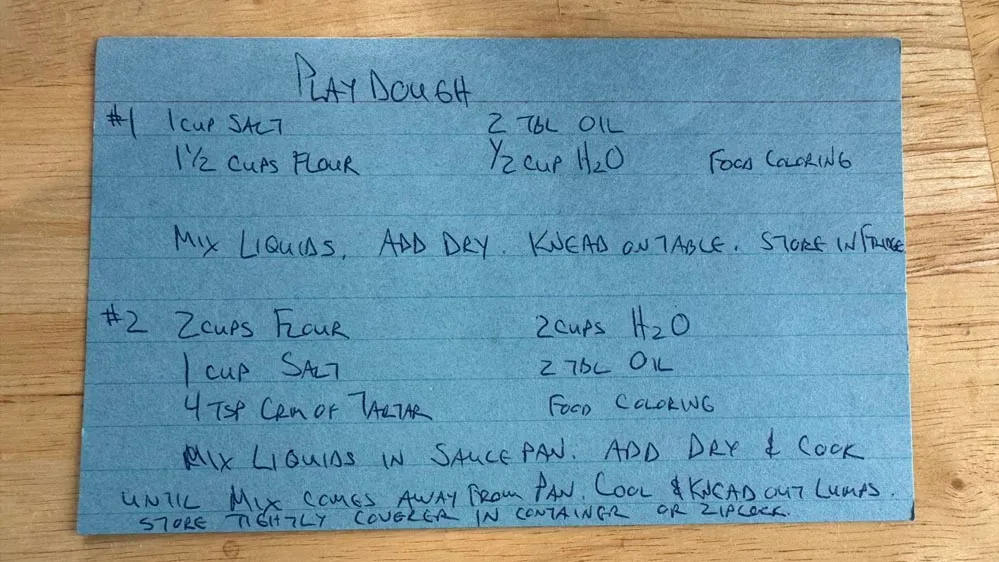 PLAY DOUGH
#1 1 CUP SALT 2 TBL OIL
1 1/2 CUPS FLOUR 1/2 CUP H2O FOOD COLORING
MIX LIQUIDS, ADD DRY. KNEAD ON TABLE. STORE IN FRIDGE
#2 2 CUPS FLOUR 2 CUPS H2O
1 CUP SALT 2 TBL OIL
4 TSP CRM OF TARTAR FOOD COLORING
MIX LIQUIDS IN SAUCE PAN. ADD DRY & COOK
UNTIL MIX COMES AWAY FROM PAN. COOL & KNEAD OUT LUMPS.
STORE TIGHTLY COVERER IN CONTAINER OR ZIPLOCK.